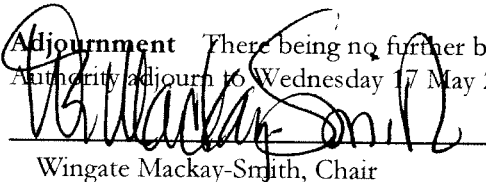 Adjournment There being no further b
Authority adjourn to Wednesday 17 May 2
Wingate Mackay-Smith, Chair